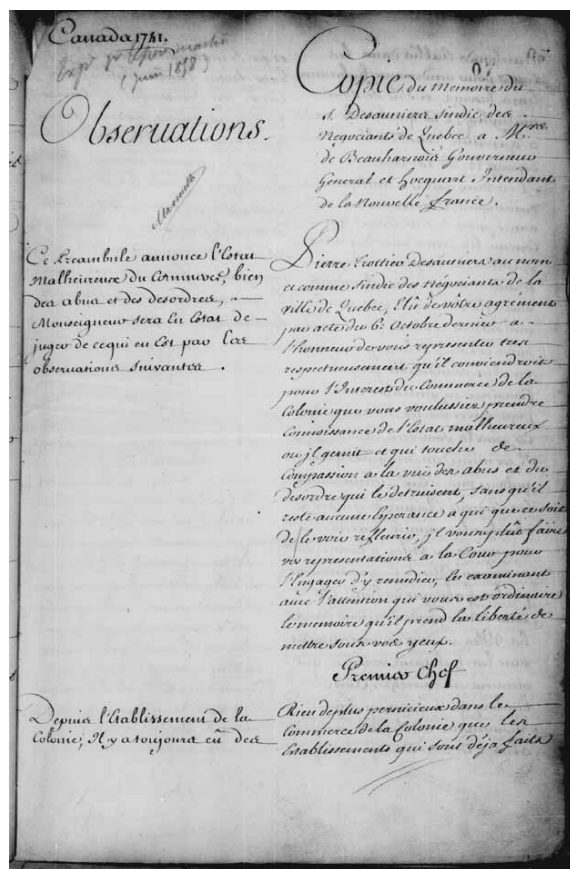 Canada 1741.
(Juin 1858)
Observations.
Ce Preambule annonce l'Estat
Malheureux du Commerce, bien
des abus et des desordres,
Monseigneur sera en Estat de
juger de ce qui en Est par les
observations suivantes.
Depuis l'Etablissement de la
Colonie, Il y a toujours eû des
Copie du Memoire du
s. Desauniers sindic des
Negociants de Quebec a Mrs.
de Beauharnois Gouverneur
General et hocquart Intendant
de la Nouvelle france.
Pierre Trottier Desauniers au nom
et comme sindic des négociants de la
ville de Quebec, Elû de vôtre agrement
par acte du 6e. Octobre dernier a
l'honneur de vous representer tres
respectueusement qu'il conviendroit
pour l'Interest du Commerce de la
Colonie que vous voulussiez prendre
Connoissance de l'Estat malheureux
ou jl gemit et que touchés de
Compassion a la vüe des abus et du
desordre qui le detruisent, sans qu'il
reste aucune Esperance a qui que ce soit
de le voir refleurir, jl vous plût faire
vos representations a la Cour pour
l'Engager d'y remedier, En examinant
avec l'attention qui vous est ordinaire
le memoire qu'il prend la liberté de
mettre sous vos yeux.
Premier Chef
Rien de plus pernicieux dans le
Commerce de la Colonie que les
Establissements qui sont déja faits